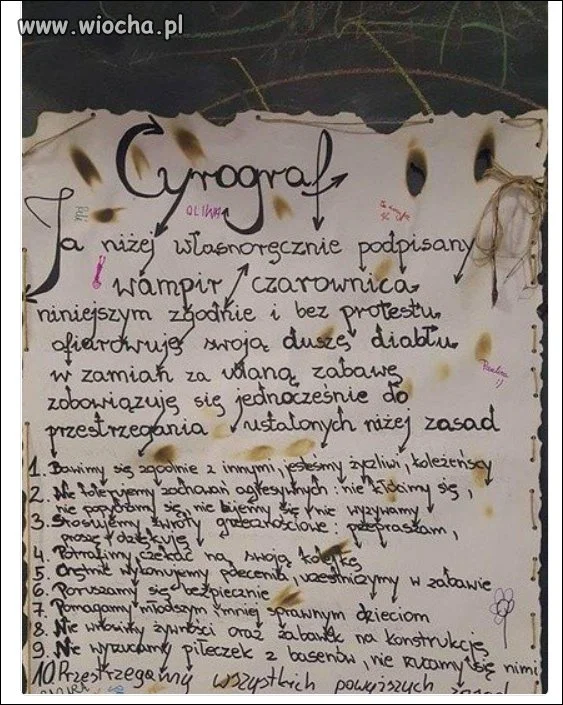 www.wiocha.pl
Cyrograf
OLIWA
Ja niżej własnoręcznie podpisany
wampir / czarownica
niniejszym zgodnie i bez protestu
ofiarowuję swoją duszę diabłu
w zamian za udaną zabawę
Paulina
zobowiązuję się jednocześnie do
przestrzegania ustalonych niżej zasad
1. Bawimy się zgodnie z innymi, jesteśmy życzliwi, koleżeńscy
2. Nie tolerujemy zachowań agresywnych: nie kłócimy się,
nie popychamy się, nie bijemy się i nie wyzywamy
3. Stosujemy zwroty grzecznościowe: przepraszam,
proszę, dziękuję
4. Potrafimy czekać na swoją kolejkę
5. Chętnie wykonujemy polecenia, uczestniczymy w zabawie
6. Poruszamy się bezpiecznie
7. Pomagamy młodszym i mniej sprawnym dzieciom
8. Nie wnosimy żywności oraz zabawek na konstrukcję
9. Nie wyrzucamy piłeczek z basenów, nie rzucamy się nimi
10. Przestrzegamy wszystkich powyższych zasad